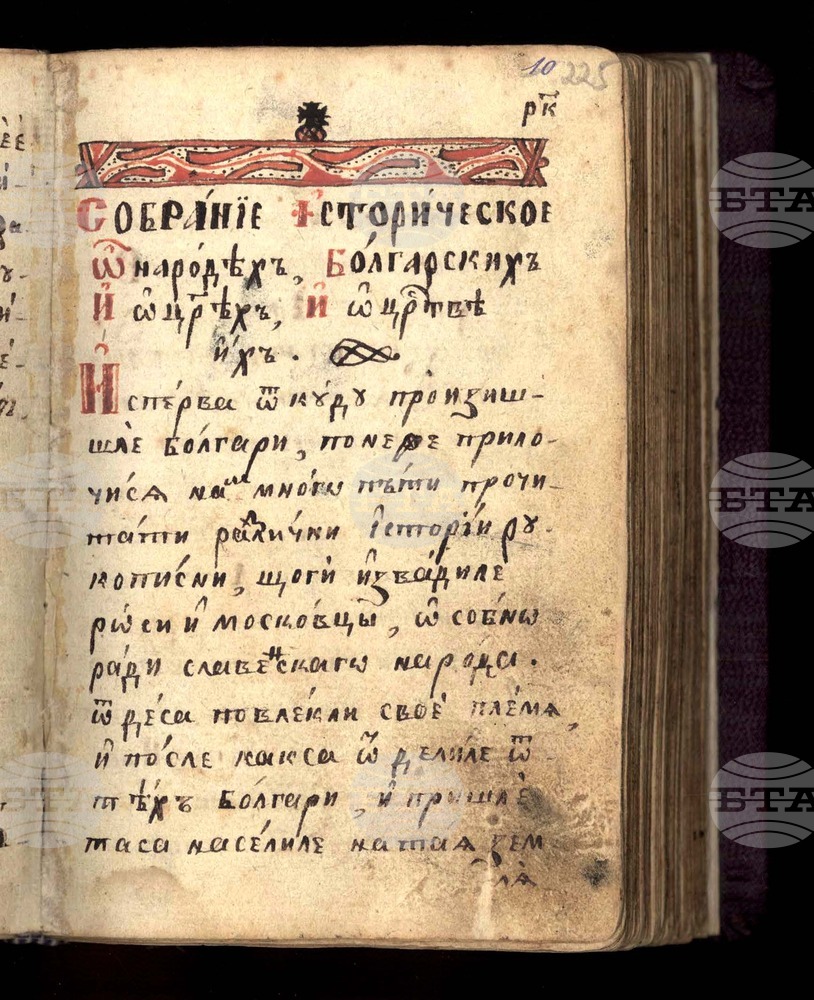 10 225
рк҃
Собра́нїе І҆стори́ческое
Ѿ наро́дѣхъ, Бо́лгарскихъ
И҆ ѡ҆ цр҃ѣхъ, И҆ ѡ҆ црⷭ҇твѣ
и҆́хъ.
И҆сперва ѿ кꙋдꙋ произиш-
шле болгари, понеже прилѹ-
чисѧ наⷨ многѡ пѫти прочи-
тати раⷥлични Їсторїи рꙋ-
кописни, щоги и҆зва́диле
рѡ́си и҆ московцы, ѡ҆собнѡ
ра́ди славеⷩскагѡ наро́да.
ѿ деса повлекли свое пле́мѧ,
и҆ по́сле какса ѿделиле ѿ
тѣ́хъ Болгари, и҆ пришле
таса насе́лиле натаѧ зем
лѧ
БТА
БТА
БТА